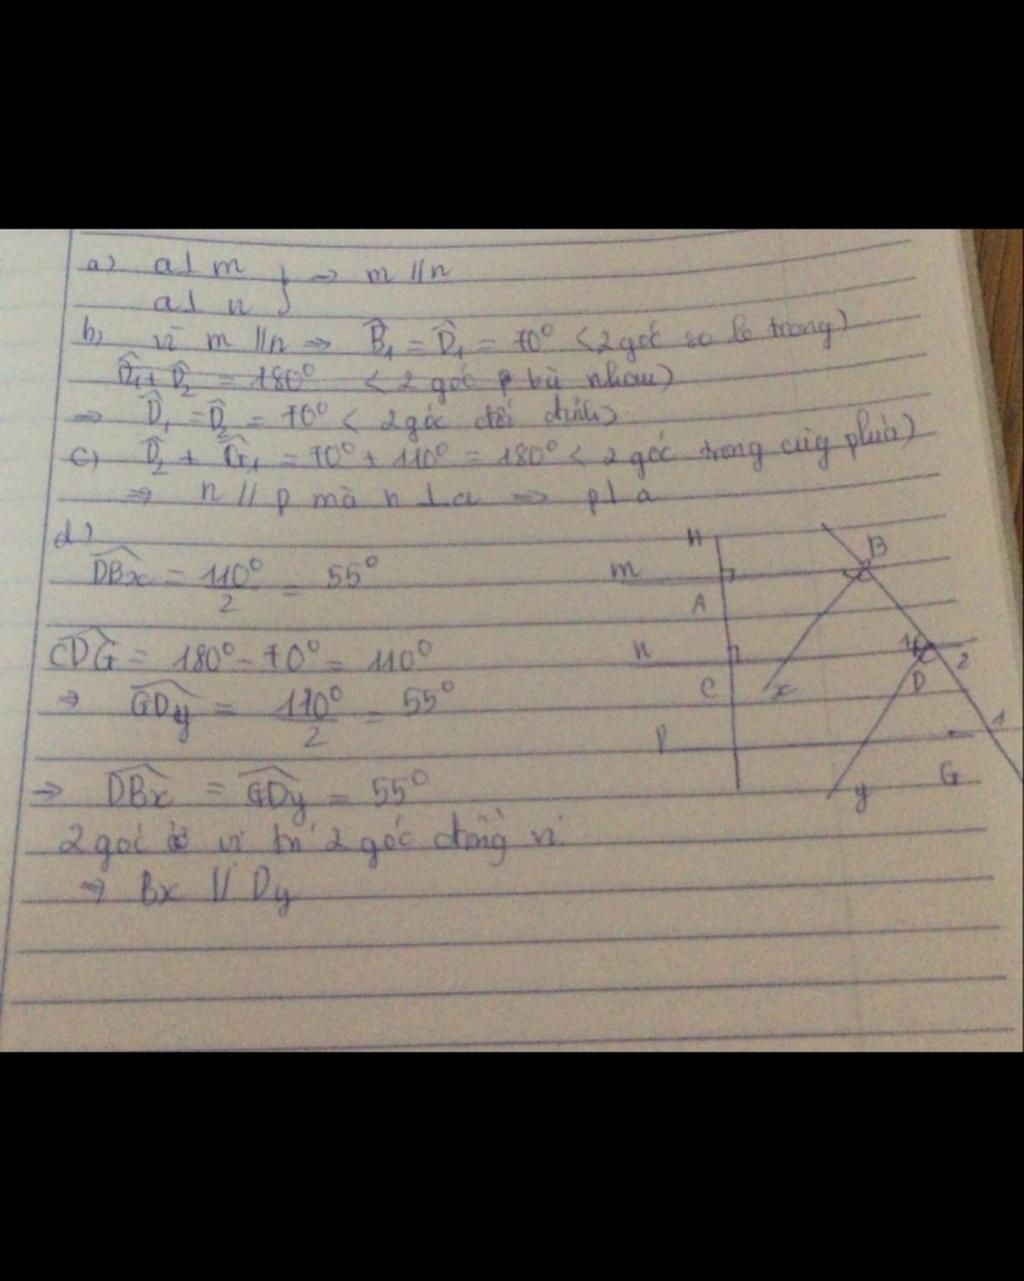 a) a⊥ m
a⊥ n } ⇒ m //n
b) vì m //n ⇒ B̂₁ = D̂₁ = 70° <2 góc so le trong)
D̂₁+D̂₂ = 180° <2 góc bù nhau)
⇒ D̂₁ = D̂₂ = 70° < 2 góc đối đỉnh)
c) D̂₂ + Ĝ₁ = 70° + 110° = 180° < 2 góc trong cùg phía)
⇒ n // p mà n ⊥ a ⇒ p⊥ a
d)
DBx = 110°/2 = 55°
CDG = 180° - 70° = 110°
⇒ GDy = 110°/2 = 55°
⇒ DBx = GDy = 55°
2 góc ở vị trí 2 góc đồng vị
⇒ Bx // Dy
B
m
A
n
1
2
C
x
D
p
1
G
y